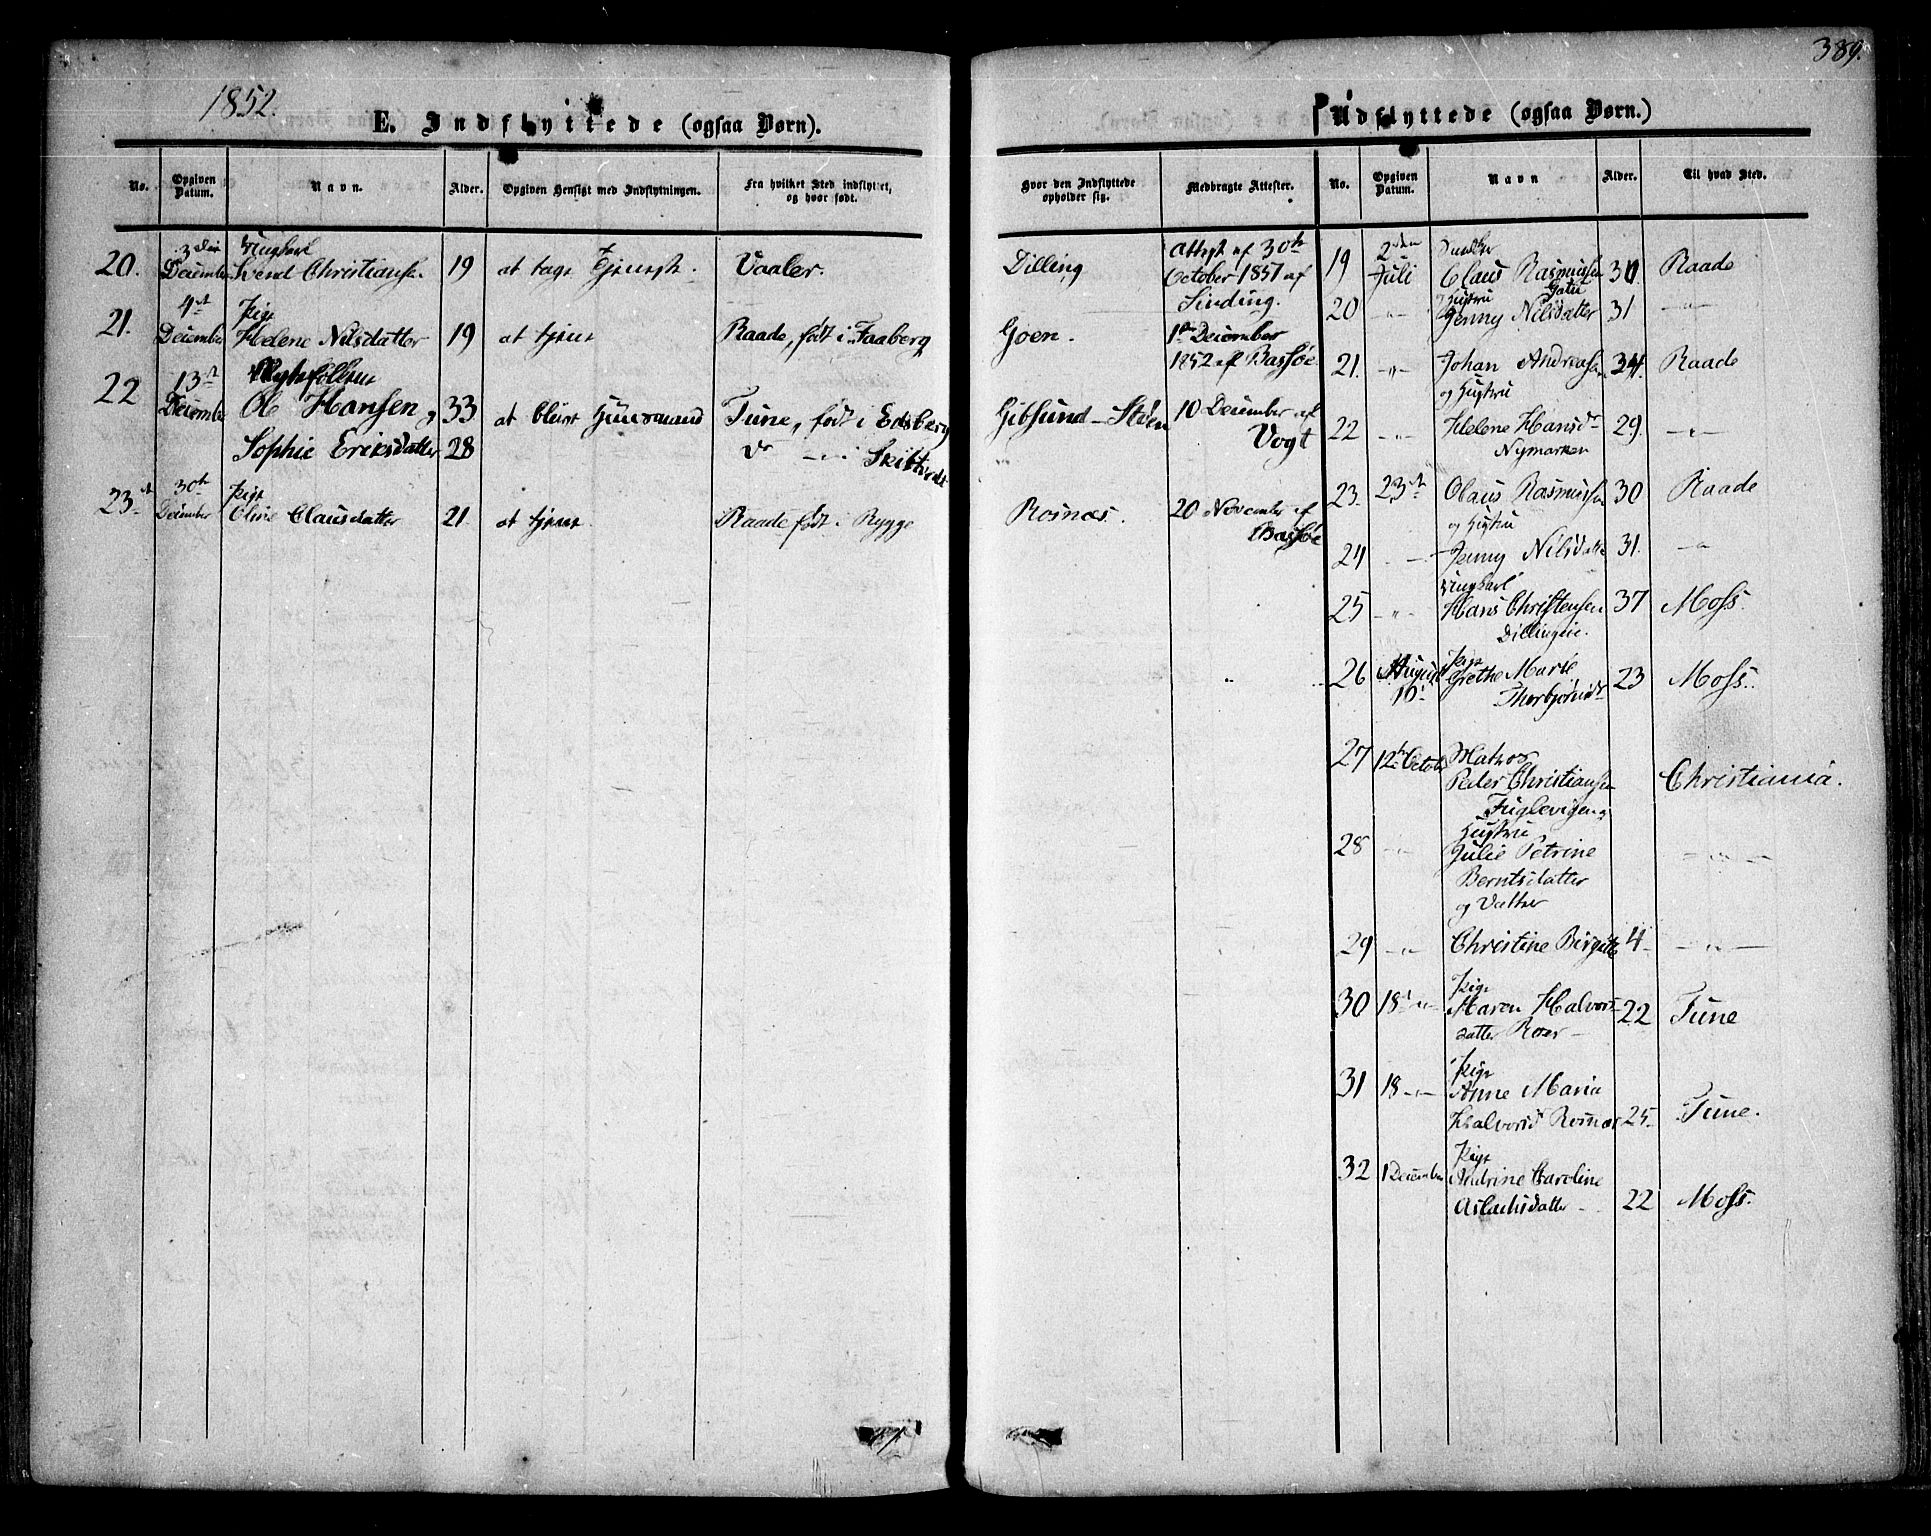 389.
1852.
E. Indflyttede (ogsaa Børn).
No.
Opgiven Datum.
Navn.
Alder.
Opgiven Hensigt med Indflytningen.
Fra hvilket Sted indflyttet, og hvor født.
20.
December
Ungkarl
Svend Christians.
19
at tage Tjeneste.
Vaaler.
21.
4de
December
Pige
Helene Nilsdatter
19
at tjene
Raade, født i Faaberg
22
13de
December
Ole Hansen og
33
at blive Huusmand
Tune, født i Edsberg
Sophie Eriksdatter
28
do — i Skibtvedt
23
30te
December
Pige
Oline Clausdatter
21.
at tjene.
Raade født i Rygge
Udflyttede (ogsaa Børn.)
Hvor den Indflyttede opholder sig.
Medbragte Attester.
No.
Opgiven Datum.
Navn
Alder.
Til hvad Sted.
Dilling
Attest af 30te
October 1851 af
Sinding.
Goen.
1ste December
1852 af Bassøe.
Gibsund
10 December af
Vogt
Rosnæs.
20 November af
Bassøe
19
2den
Juli
Claus Rasmussen
30
Raade
20
Hustru
Jenny Nilsdatter
31
21.
Johan Andreassen
34.
Raade
og Hustru
22
Helene Hansd
29.
Nymarken
23.
23de
Claus Rasmussen
30
Raade
og Hustru
24
Jenny Nilsdatter
31.
25
Ungkarl
Hans Christensen
37
Moss.
26
August
10
Pige
Grethe Marie
23
Moss.
Thorbjørnsd
27
12te October
Matros
Peder Christiansen
Christiania.
Fuglevigen og
Hustru
28
Julie Petrine
Berntsdatter
og Datter
29
Christine Birgitte
4
30
18
Pige
Maren Halvors-
22
Tune
datter Roer
31
18
Pige
Anne Maria
Halvorsd Rosnæs
25
Tune.
32
1 December
Pige
Andrine Caroline
Aslachsdatter
22
Moss.